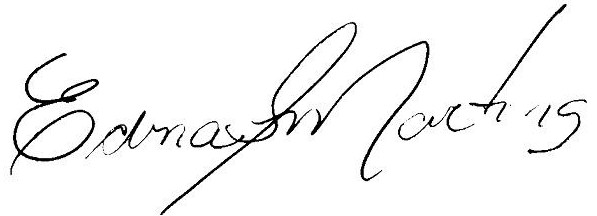 Edna Martins